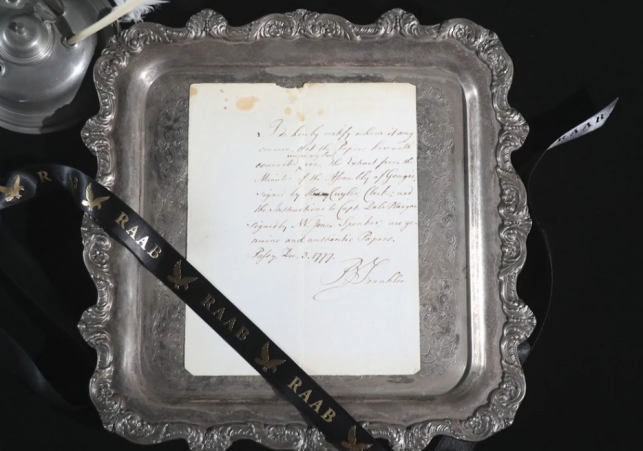 I do hereby certify whom it may
concern, that the Papers herewith
connected, viz. the Extract from the
Minutes of the Assembly of Georgia,
signed by Cuyler Clerk; and
the Instructions to Capt.
signed by N. W. Jones Speaker are ge-
nuine and authentic Papers.
Passy, Dec. 3. 1777.
B Franklin
RAAB
RAAB
RAAB
RAAB